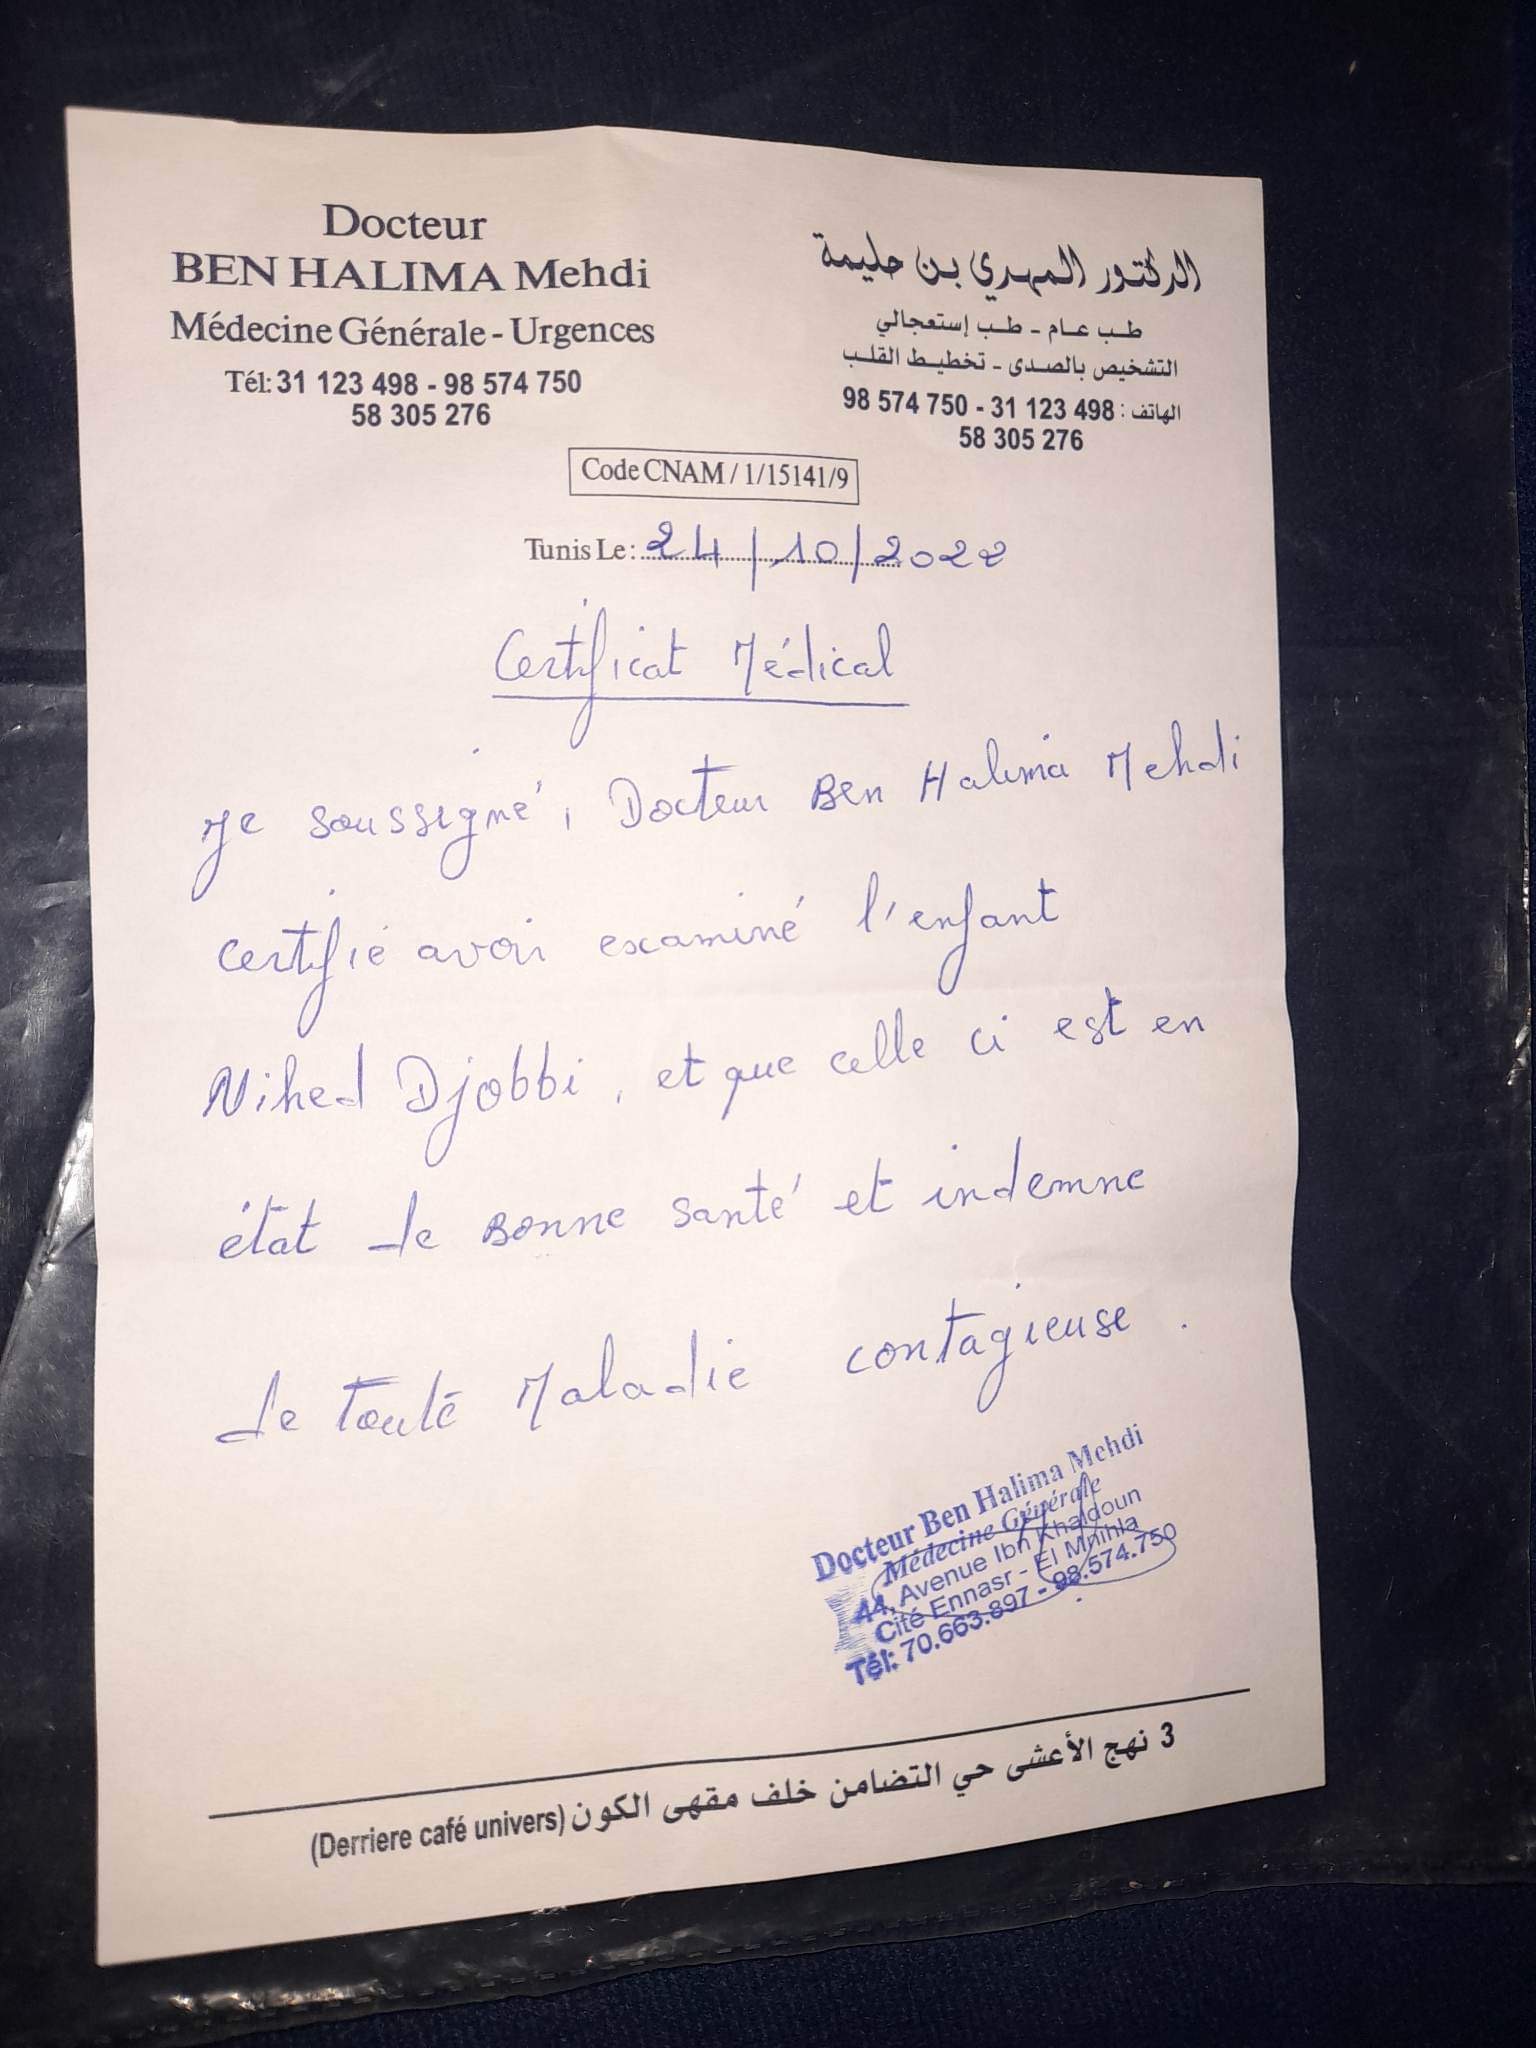 Docteur
BEN HALIMA Mehdi
Médecine Générale - Urgences
Tél: 31 123 498 - 98 574 750
58 305 276
الدكتور المهدي بن حليمة
طب عام - طب إستعجالي
التشخيص بالصدى - تخطيط القلب
الهاتف : 31 123 498 - 98 574 750
58 305 276
Code CNAM / 1/15141/9
Tunis Le : 24/10/2022
Certificat Médical
Je soussigné, Docteur Ben Halima Mehdi
certifié avoir examiné l'enfant
Nihed Djobbi, et que celle ci est en
état de bonne santé et indemne
de toute Maladie contagieuse.
Docteur Ben Halima Mehdi
Médecine Générale
44, Avenue Ibn Khaldoun
Cité Ennasr - El Mnihla
Tél: 70.663.897 - 98.574.750
3 نهج الأعشى حي التضامن خلف مقهى الكون (Derriere café univers)